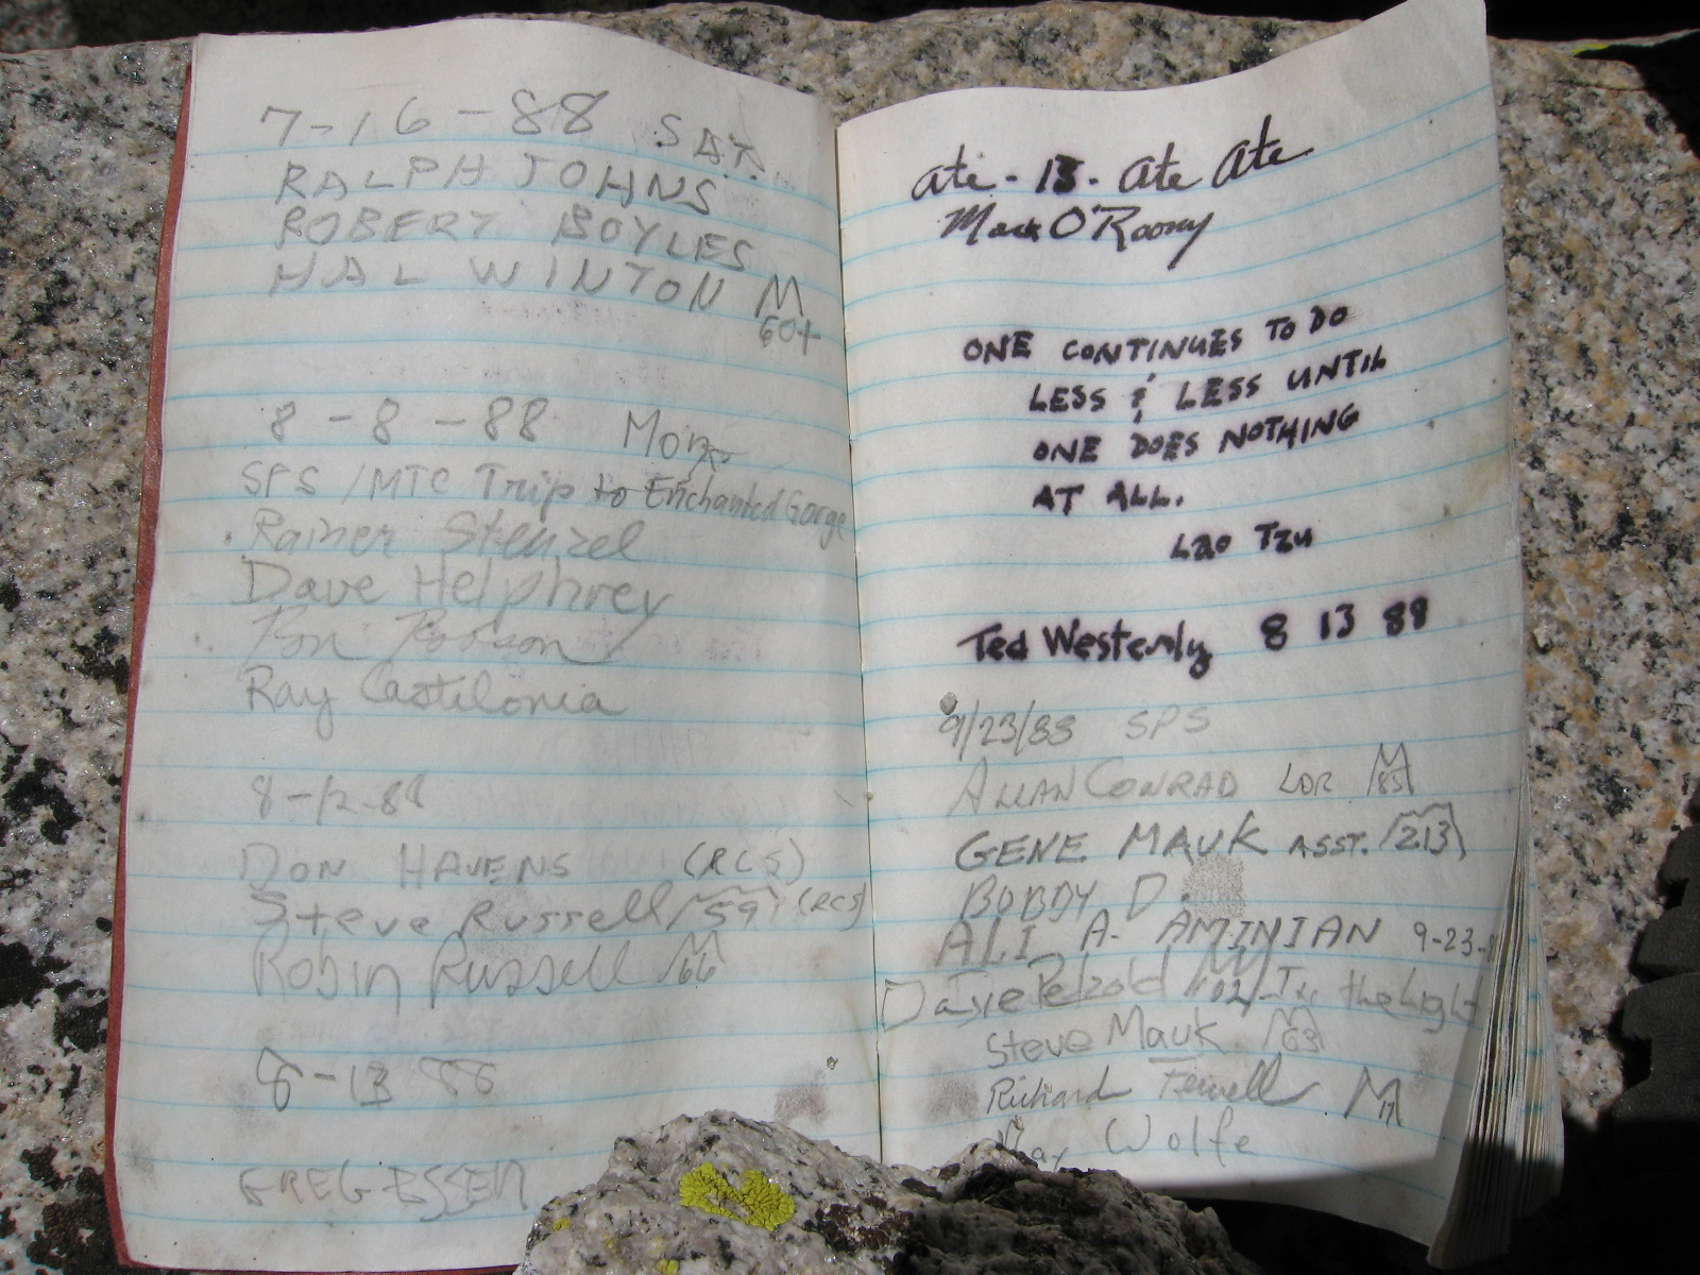 7-16-88 SAT.
RALPH JOHNS
ROBERT BOYLES
HAL WINTON M
60+
8-8-88 Mon
SPS/MTC Trip to Enchanted Gorge
Rainer Stenzel
Dave Helphrey
Ron
Ray Castilonia
8-12-88
DON HAVENS (RCS)
Steve Russell 59 (RCS)
Robin Russell M 66
8-13 88
GREG ESSEN
ate - 13 - ate ate
Mark O'Roony
ONE CONTINUES TO DO
LESS & LESS UNTIL
ONE DOES NOTHING
AT ALL.
Lao Tzu
Ted Westerly 8 13 88
9/23/88 SPS
ALLAN CONRAD LDR M 85
GENE MAUK ASST. 213
BOBBY D.
ALI A. AMINIAN 9-23-8
Petzold 102 In the Light
Steve Mauk M 63
Richard M 17
Wolfe